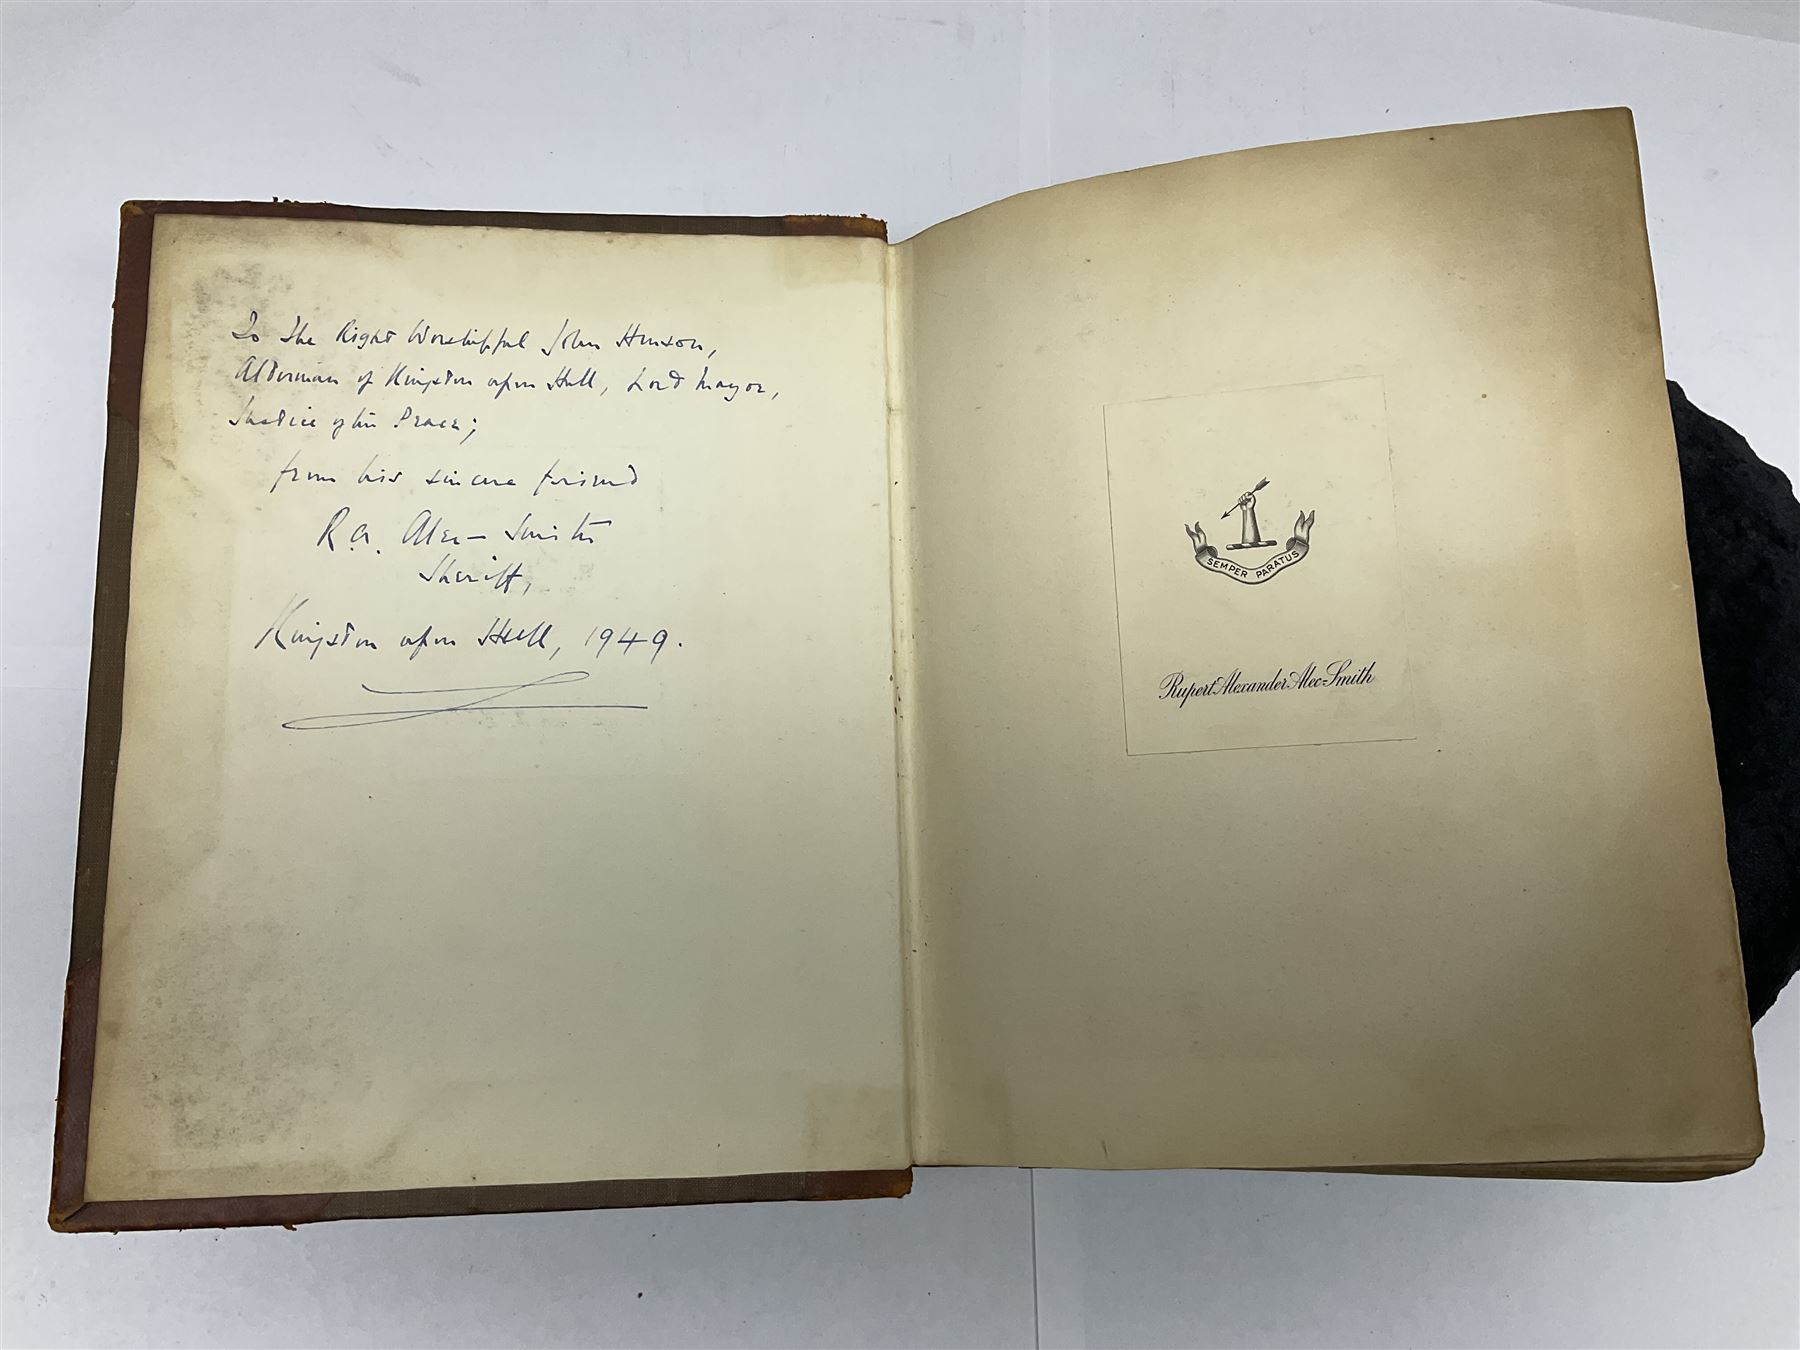 To the Right Worshipful John Henson,
Alderman of Kingston upon Hull, Lord Mayor,
Justice of the Peace;
from his sincere friend
R.A. Alec-Smith
Sheriff,
Kingston upon Hull, 1949.
SEMPER PARATUS
Rupert Alexander Alec-Smith